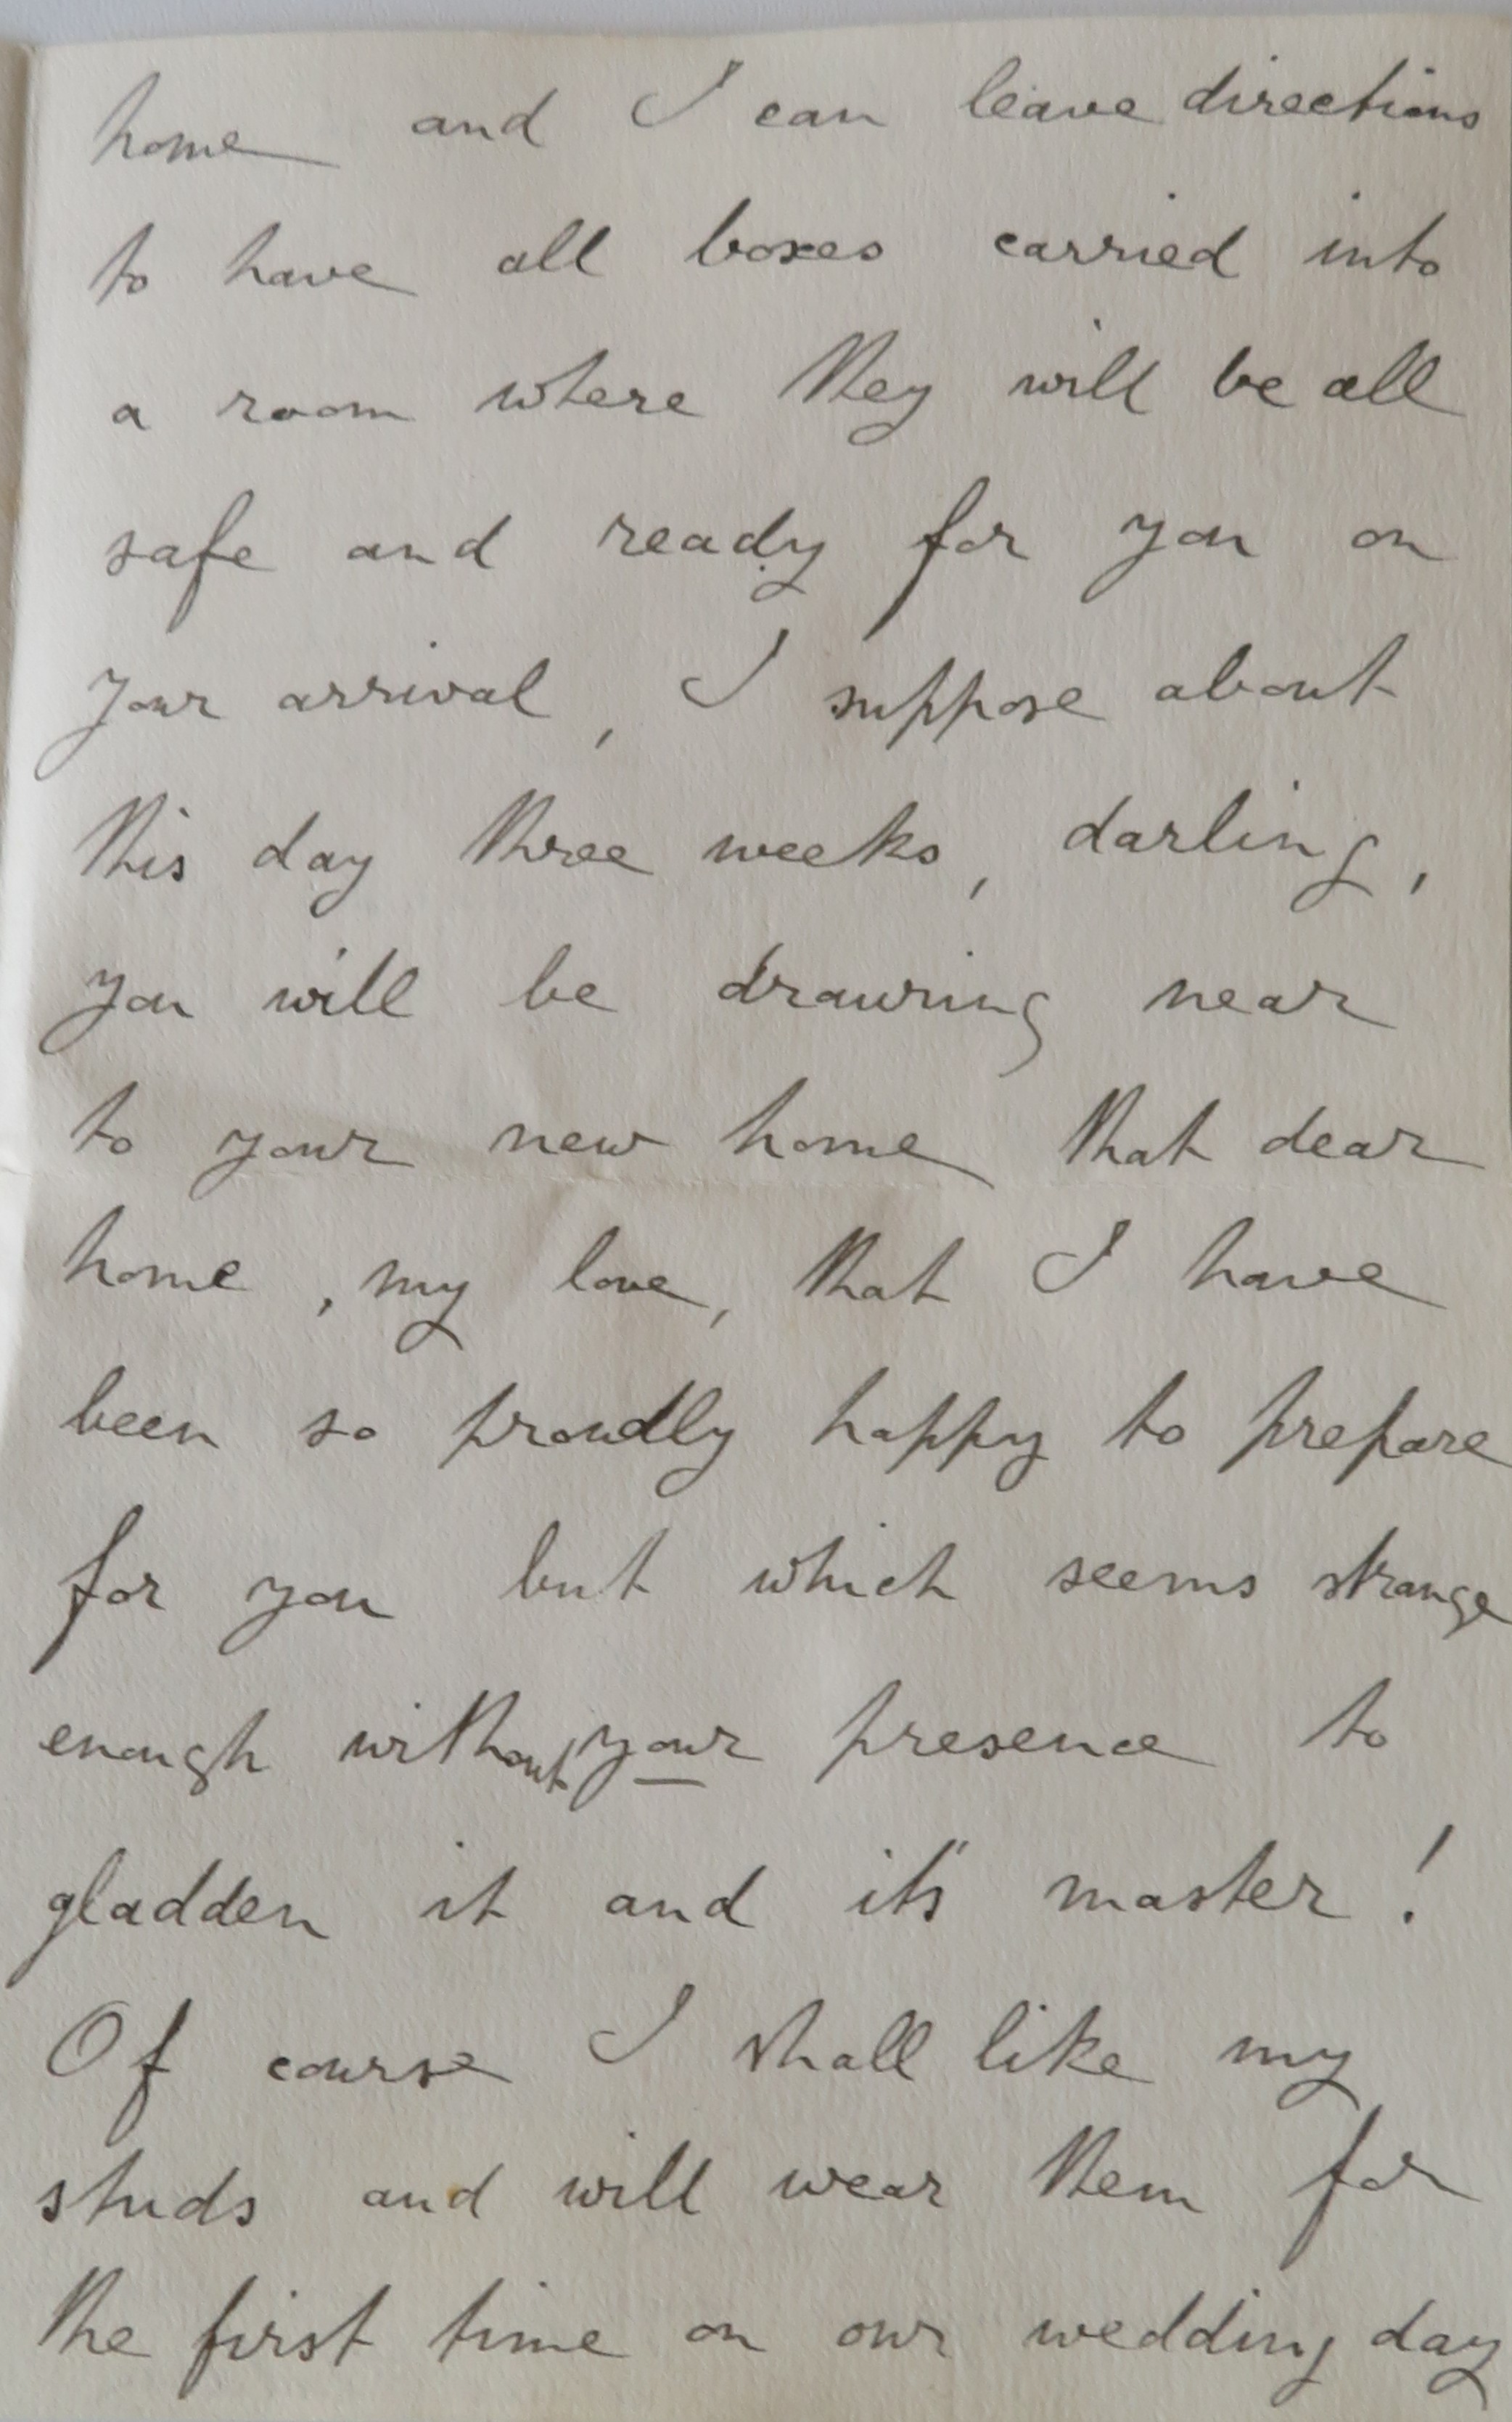 home and I can leave directions
to have all boxes carried into
a room where they will be all
safe and ready for you on
your arrival, I suppose about
this day three weeks, darling,
you will be drawing near
to your new home that dear
home, my love, that I have
been so proudly happy to prepare
for you but which seems strange
enough without your presence to
gladden it and it's master!
Of course I shall like my
studs and will wear them for
the first time on our wedding day